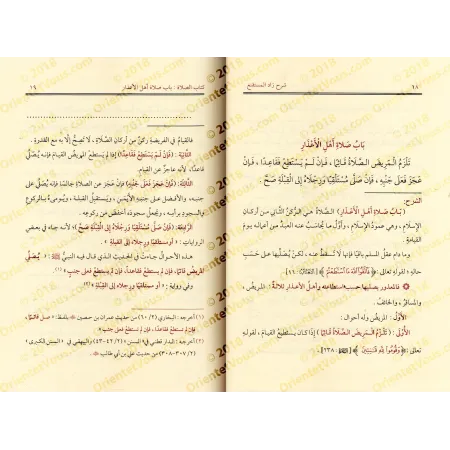 ١٨
شرح زاد المستقنع
بَابُ صَلَاةِ أَهْلِ الْأَعْذَارِ
تَلْزَمُ الْمَرِيضَ الصَّلَاةُ قَائِمًا ، فَإِنْ لَمْ يَسْتَطِعْ فَقَاعِدًا ، فَإِنْ
عَجَزَ فَعَلَى جَنْبِهِ ، فَإِنْ صَلَّى مُسْتَلْقِيًا وَرِجْلَاهُ إِلَى الْقِبْلَةِ صَحَّ .
الشرح:
( بَابُ صَلَاةِ أَهْلِ الْأَعْذَارِ ) الصَّلاةُ هي الرُّكنُ الثاني من أركان
الإسلام ، وهي عمودُ الإسلام ، وأوَّلُ ما يُحاسَبُ عنه العبدُ من أعماله يومَ
القيامة .
وما دام عقلُ المسلم باقيًا فإنها لا تَسقُطُ عنه ، لكنْ يُصلِّيها على حَسَبِ
حالِهِ ؛ لقولِه تعالى : ﴿ فَاتَّقُوا اللَّهَ مَا اسْتَطَعْتُمْ ﴾ [ : ١٦] .
فالمعذور يصليها حسب استطاعته وأهلُ الأعذار ثلاثةٌ : المريضُ ،
والمسافرُ ، والخائفُ .
الأَوَّلُ : المريضُ وله أحوال :
الأُولَى : ( تَلْزَمُ الْمَرِيضَ الصَّلَاةُ قَائِمًا ) إذا كان يستطيعُ القيامَ ، لقوله
تعالى : ﴿ وَقُومُوا لِلَّهِ قَانِتِينَ ﴾ [ : ٢٣٨] .
كتاب الصلاة : باب صلاة أهل الأعذار
١٩
فالقيامُ في الفريضةِ ركنٌ من أركان الصَّلاةِ ، لا تَصِحُّ إلَّا به مع القدرةِ .
الثَّانِيَةُ : ( فَإِنْ لَمْ يَسْتَطِعْ فَقَاعِدًا ) إذا لم يستطع المريضُ القيامَ فإنه يُصلِّي
قاعدًا ، لأنه عاجزٌ عن القيامِ .
الثَّالِثَةُ : ( فَإِنْ عَجَزَ فَعَلَى جَنْبِهِ ) فإنْ عَجَزَ عن الصلاةِ جالسًا فإنه يُصلِّي على
جنبِه ، والأفضلُ على جنبِه الأيمنِ ، ويَستقبِلُ القبلةَ ، ويُومِئُ بالركوعِ
والسجودِ برأسِه ، ويَجعلُ سجودَه أخفضَ من ركوعِه .
الرَّابِعَةُ : ( فَإِنْ صَلَّى مُسْتَلْقِيًا وَرِجْلَاهُ إِلَى الْقِبْلَةِ صَحَّ ) ؛ لأنه جاء في بعض
الروايات : « مستلقيًا ورجلاه إلى القبلة » .
هذه الأحوالُ جاءت في الحديثِ الذي قال فيه النبيُّ ﷺ : « يُصَلِّي
المريضُ قائمًا ، فإن لم يستطع فقاعدًا ، فإن لم يستطع فعلى جنب » (١)
وفي رواية : « أو مستلقيًا ورجلاه إلى القبلة » (٢) .
(١) أخرجه : البخاري (٢/ ٦٠) من حديث عمران بن حصين ﷺ بلفظ : « صل قائمًا ،
فإن لم تستطع فقاعدًا ، فإن لم تستطع فعلى جنب » .
(٢) أخرجه : الدارقطني في « السنن » (٢/ ٤٢-٤٣) ، والبيهقي في « السنن الكبرى »
(٢/ ٣٠٧-٣٠٨) من حديث علي بن أبي طالب .
© 2018
OrientetVous.com